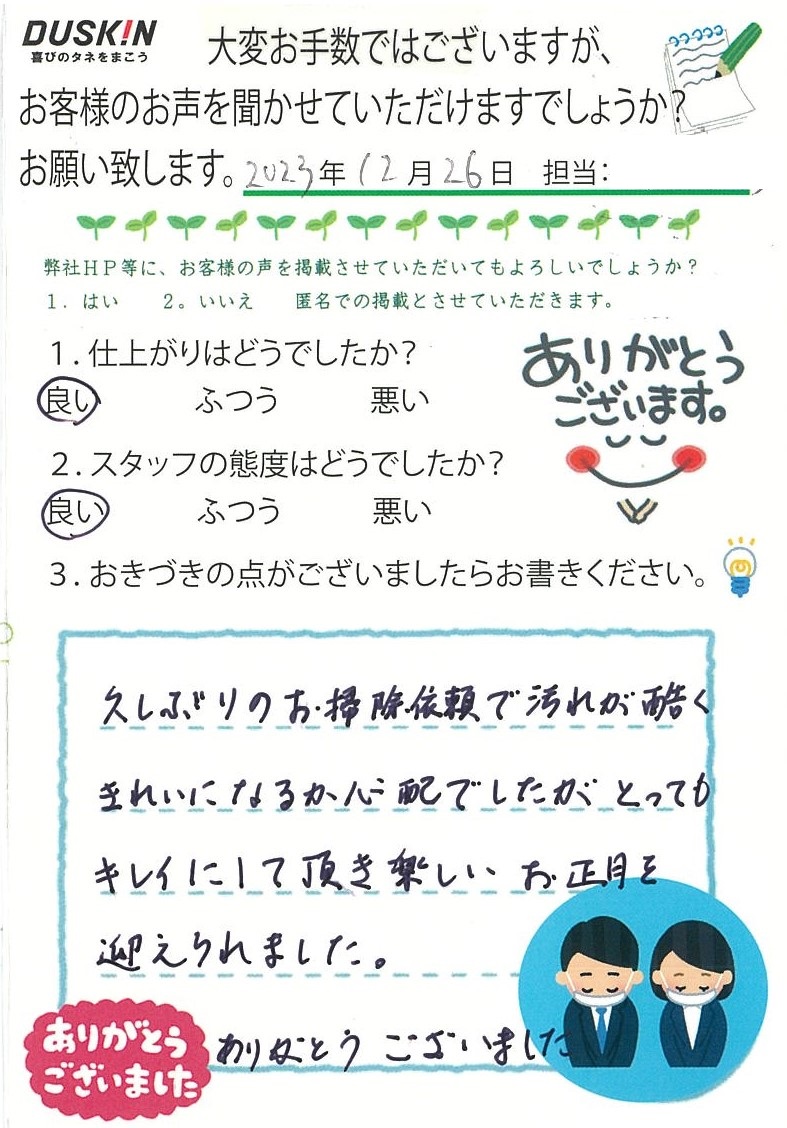 DUSK!N
喜びのタネをまこう
大変お手数ではございますが、
お客様のお声を聞かせていただけますでしょうか?
お願い致します。2023年12月26日 担当:
弊社HP等に、お客様の声を掲載させていただいてもよろしいでしょうか?
1. はい 2。いいえ 匿名での掲載とさせていただきます。
1.仕上がりはどうでしたか?
良い ふつう 悪い
ありがとう
ございます。
2.スタッフの態度はどうでしたか?
良い ふつう 悪い
3.おきづきの点がございましたらお書きください。
久しぶりのお掃除依頼で汚れが酷く
きれいになるか心配でしたが とっても
キレイにして頂き楽しい お正月を
迎えられました。
ありがとう ございました
ありがとう
ございました